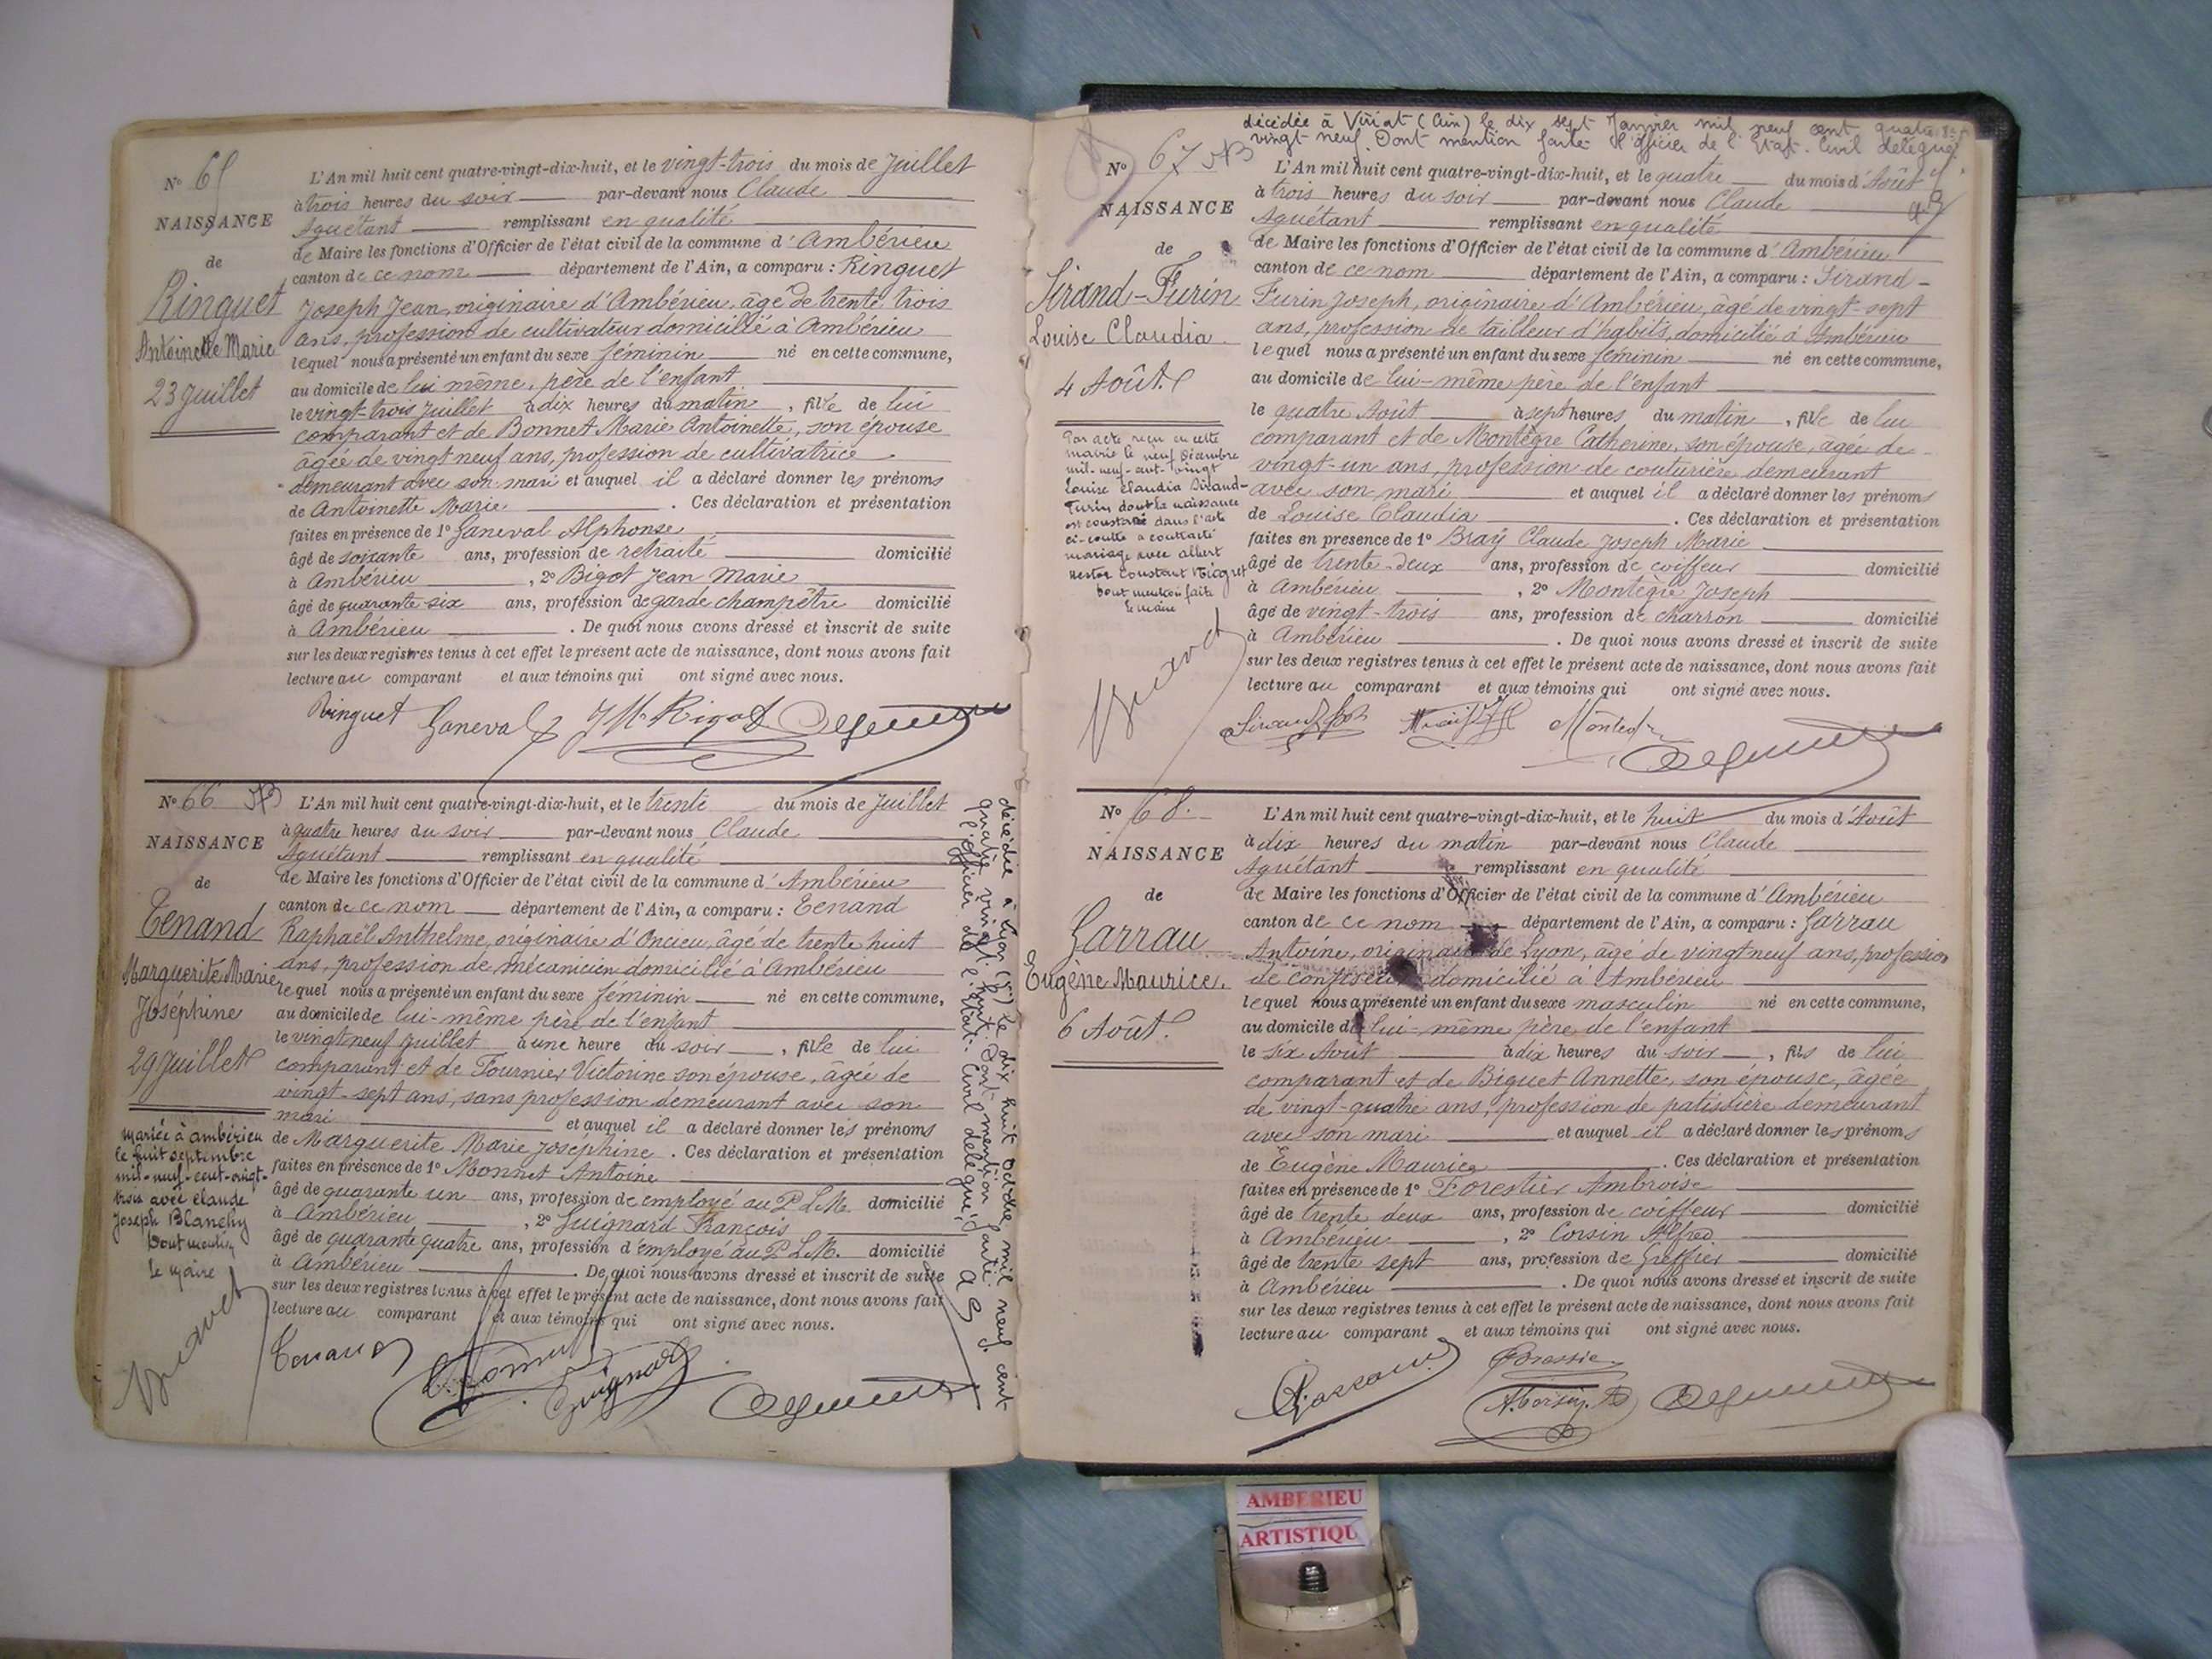 N° 65
NAISSANCE
de
Ringuet
Antoinette Marie
23 Juillet
L'An mil huit cent quatre-vingt-dix-huit, et le vingt-trois du mois de Juillet
à trois heures du soir par-devant nous Claude
Aguétant remplissant en qualité
de Maire les fonctions d'Officier de l'état civil de la commune d'Ambérieu
canton de ce nom département de l'Ain, a comparu : Ringuet
Joseph Jean, originaire d'Ambérieu, âgé de trente trois
ans, profession de cultivateur domicilié à Ambérieu
lequel nous a présenté un enfant du sexe féminin né en cette commune,
au domicile de lui même, père de l'enfant
le vingt-trois Juillet à dix heures du matin, fille de lui
comparant et de Bonnet Marie Antoinette, son épouse
âgée de vingt neuf ans, profession de cultivatrice
demeurant avec son mari et auquel il a déclaré donner les prénoms
de Antoinette Marie. Ces déclaration et présentation
faites en présence de 1° Ganeval Alphonse
âgé de soixante ans, profession de retraité domicilié
à Ambérieu, 2° Bigot Jean Marie
âgé de quarante-six ans, profession de garde champêtre domicilié
à Ambérieu. De quoi nous avons dressé et inscrit de suite
sur les deux registres tenus à cet effet le présent acte de naissance, dont nous avons fait
lecture au comparant et aux témoins qui ont signé avec nous.
Ringuet Ganeval J M Bigot
N° 66
NAISSANCE
de
Tenand
Marguerite Marie
Joséphine
29 Juillet
mariée à ambérieu
le huit septembre
mil-neuf-cent-vingt-
trois avec claude
Joseph Blanchy
Dont mention
Le Maire
L'An mil huit cent quatre-vingt-dix-huit, et le trente du mois de Juillet
à quatre heures du soir par-devant nous Claude
Aguétant remplissant en qualité
de Maire les fonctions d'Officier de l'état civil de la commune d'Ambérieu
canton de ce nom département de l'Ain, a comparu : Tenand
Raphaël Anthelme, originaire d'Oncieu, âgé de trente huit
ans, profession de mécanicien domicilié à Ambérieu
lequel nous a présenté un enfant du sexe féminin né en cette commune,
au domicile de lui-même père de l'enfant
le vingt neuf Juillet à une heure du soir, fille de lui
comparant et de Fournier Victorine son épouse, âgée de
vingt-sept ans, sans profession demeurant avec son
mari et auquel il a déclaré donner les prénoms
de Marguerite Marie Joséphine. Ces déclaration et présentation
faites en présence de 1° Monnet Antoine
âgé de quarante un ans, profession de employé au P.L.M. domicilié
à Ambérieu, 2° Guignard François
âgé de quarante quatre ans, profession d'employé au P.L.M. domicilié
à Ambérieu. De quoi nous avons dressé et inscrit de suite
sur les deux registres tenus à cet effet le présent acte de naissance, dont nous avons fait
lecture au comparant et aux témoins qui ont signé avec nous.
Tenand Guignard
décédée à Lyon le dix huit octobre mil neuf cent
quatre vingt sept. Dont mention faite.
l'officier de l'Etat. Civil délégué,
décédée à Viriat (Ain) le dix sept Janvier mil neuf cent quatre
vingt neuf. Dont mention faite l'officier de l'Etat. Civil délégué.
N° 67
NAISSANCE
de
Sirand-Furin
Louise Claudia
4 Août
Par acte reçu en cette
mairie le neuf Décembre
mil-neuf-cent-vingt
Louise Claudia Sirand-
Furin dont la naissance
est constatée dans l'acte
ci-contre a contracté
mariage avec albert
nestor constant
Dont mention faite
Le Maire
L'An mil huit cent quatre-vingt-dix-huit, et le quatre du mois d'Août
à trois heures du soir par-devant nous Claude
Aguétant remplissant en qualité
de Maire les fonctions d'Officier de l'état civil de la commune d'Ambérieu
canton de ce nom département de l'Ain, a comparu : Sirand-
Furin Joseph, originaire d'Ambérieu, âgé de vingt-sept
ans, profession de tailleur d'habits, domicilié à Ambérieu
lequel nous a présenté un enfant du sexe féminin né en cette commune,
au domicile de lui-même père de l'enfant
le quatre Août à sept heures du matin, fille de lui
comparant et de Montègre Catherine, son épouse, agée de
vingt-un ans, profession de couturière demeurant
avec son mari et auquel il a déclaré donner les prénoms
de Louise Claudia. Ces déclaration et présentation
faites en présence de 1° Bray Claude Joseph Marie
âgé de trente-deux ans, profession de coiffeur domicilié
à Ambérieu, 2° Montègre Joseph
âgé de vingt-trois ans, profession de charron domicilié
à Ambérieu. De quoi nous avons dressé et inscrit de suite
sur les deux registres tenus à cet effet le présent acte de naissance, dont nous avons fait
lecture au comparant et aux témoins qui ont signé avec nous.
N° 68
NAISSANCE
de
Garrau
Eugène Maurice
6 Août
L'An mil huit cent quatre-vingt-dix-huit, et le huit du mois d'Août
à dix heures du matin par-devant nous Claude
Aguétant remplissant en qualité
de Maire les fonctions d'Officier de l'état civil de la commune d'Ambérieu
canton de ce nom département de l'Ain, a comparu : Garrau
Antoine, originaire de Lyon, âgé de vingt neuf ans, profession
de confiseur domicilié à Ambérieu
lequel nous a présenté un enfant du sexe masculin né en cette commune,
au domicile de lui-même père de l'enfant
le six Août à dix heures du soir, fils de lui
comparant et de Biguet Annette, son épouse, âgée
de vingt-quatre ans, profession de patissière demeurant
avec son mari et auquel il a déclaré donner les prénoms
de Eugène Maurice. Ces déclaration et présentation
faites en présence de 1° Forestier Ambroise
âgé de trente deux ans, profession de coiffeur domicilié
à Ambérieu, 2° Corsin Alfred
âgé de trente sept ans, profession de Greffier domicilié
à Ambérieu. De quoi nous avons dressé et inscrit de suite
sur les deux registres tenus à cet effet le présent acte de naissance, dont nous avons fait
lecture au comparant et aux témoins qui ont signé avec nous.
AMBERIEU
ARTISTIQU